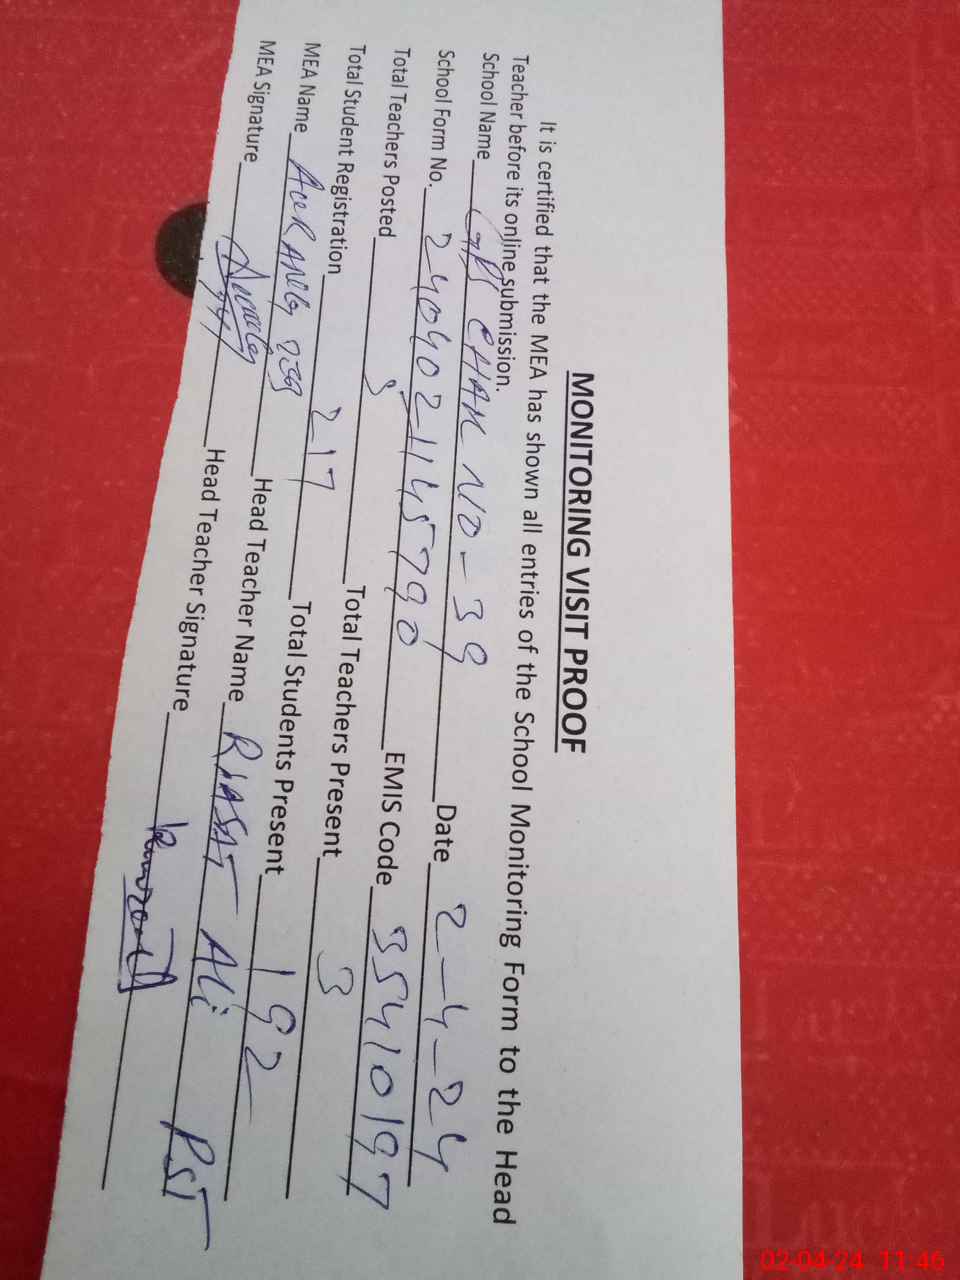 MONITORING VISIT PROOF
It is certified that the MEA has shown all entries of the School Monitoring Form to the Head
Teacher before its online submission.
School Name GPS CHAK NO-39 Date 2-4-24
School Form No. 2404021145790 EMIS Code 35410197
Total Teachers Posted Total Teachers Present 3
Total Student Registration 217 Total Students Present 192
MEA Name Head Teacher Name RIASAT Ali PST
MEA Signature Head Teacher Signature
02-04-24 11:46